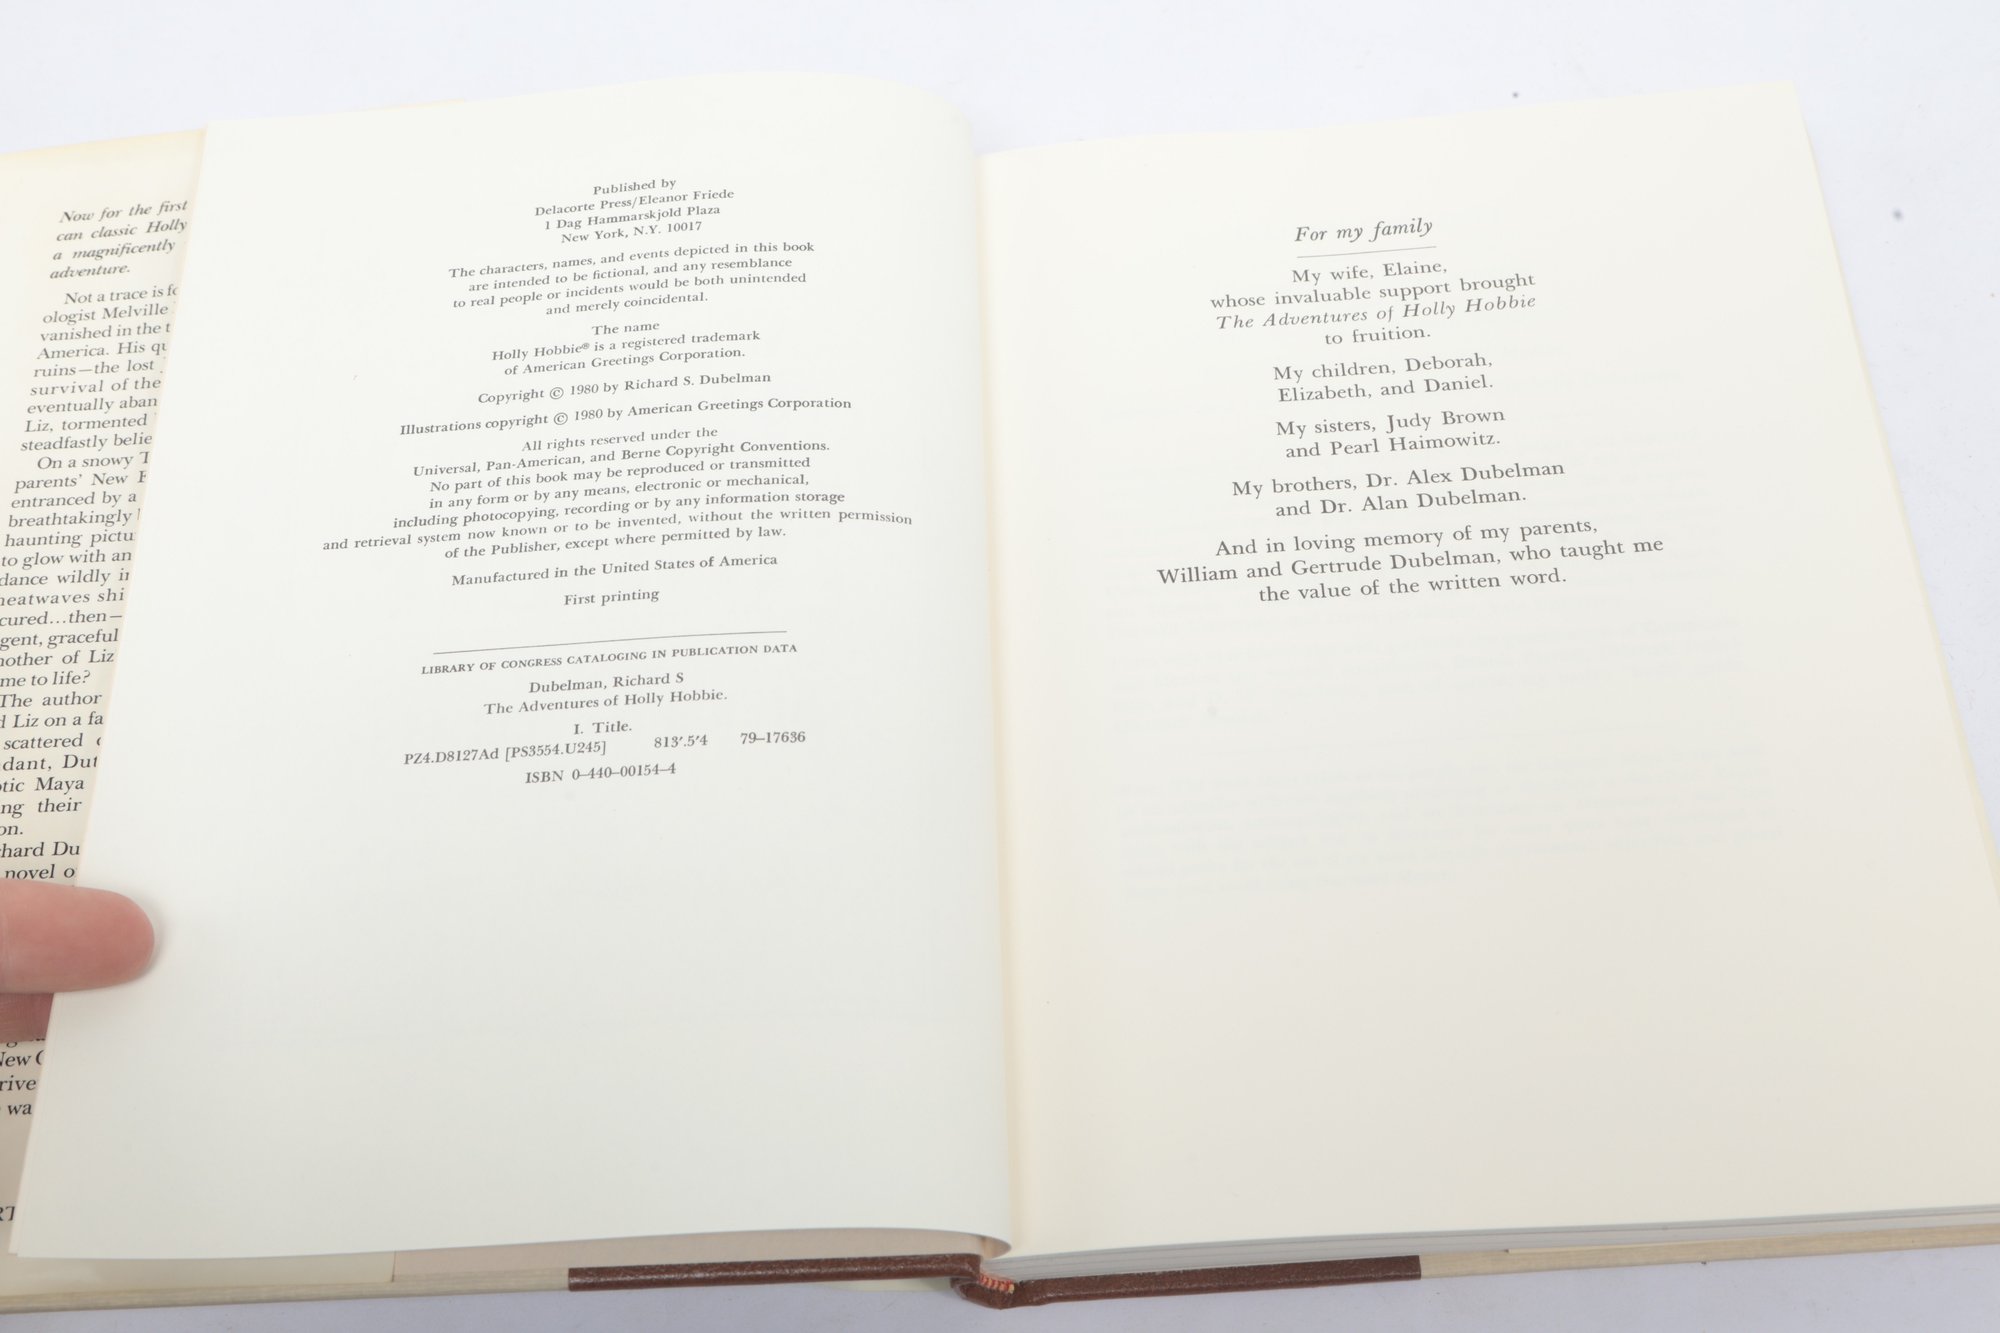 Now for the first
can classic Holly
a magnificently
adventure.
Not a trace is
ologist Melville
vanished in the
America. His
ruins—the lost
survival of the
eventually aban
Liz, tormented
steadfastly belie
On a snowy
parents' New
entranced by a
breathtakingly
haunting pictu
to glow with an
dance wildly
heatwaves shi
cured...then—
gent, graceful
nother of Liz
me to life?
The author
Liz on a fa
scattered
dant, Dut
otic Maya
ng their
on.
hard Du
novel o
New
rive
wa
Published by
Delacorte Press/Eleanor Friede
1 Dag Hammarskjold Plaza
New York, N.Y. 10017
The characters, names, and events depicted in this book
are intended to be fictional, and any resemblance
to real people or incidents would be both unintended
and merely coincidental.
The name
Holly Hobbie® is a registered trademark
of American Greetings Corporation.
Copyright © 1980 by Richard S. Dubelman
Illustrations copyright © 1980 by American Greetings Corporation
All rights reserved under the
Universal, Pan-American, and Berne Copyright Conventions.
No part of this book may be reproduced or transmitted
in any form or by any means, electronic or mechanical,
including photocopying, recording or by any information storage
and retrieval system now known or to be invented, without the written permission
of the Publisher, except where permitted by law.
Manufactured in the United States of America
First printing
LIBRARY OF CONGRESS CATALOGING IN PUBLICATION DATA
Dubelman, Richard S
The Adventures of Holly Hobbie.
I. Title.
PZ4.D8127Ad [PS3554.U245] 813'.5'4 79–17636
ISBN 0–440–00154–4
For my family
My wife, Elaine,
whose invaluable support brought
The Adventures of Holly Hobbie
to fruition.
My children, Deborah,
Elizabeth, and Daniel.
My sisters, Judy Brown
and Pearl Haimowitz.
My brothers, Dr. Alex Dubelman
and Dr. Alan Dubelman.
And in loving memory of my parents,
William and Gertrude Dubelman, who taught me
the value of the written word.